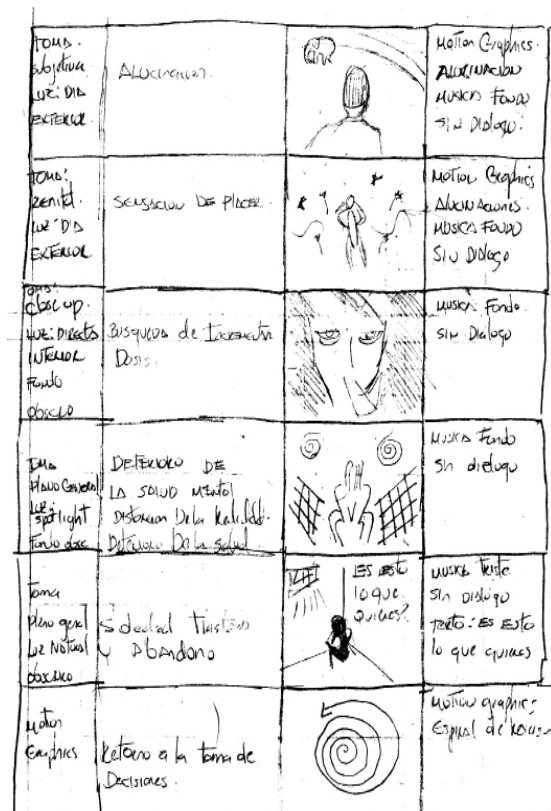 TOMA:
subjetiva
LUZ: DIA
EXTERIOR.
ALUCINACION.
Motion Graphics.
ALUCINACION
MUSICA FONDO
SIN DIALOGO.
TOMA:
Zenital.
LUZ: DIA
EXTERIOR
SENSACION DE PLACER.
Motion Graphics
ALUCINACIONES.
MUSICA FONDO
SIN DIALOGO
TOMA:
Close up.
LUZ: DIRECTA
INTERIOR
Fondo
obscuro
BUSQUEDA de Incrementar
Dosis.
MUSICA Fondo
SIN Dialogo
TOMA
PLANO General
LUZ:
spotlight
Fondo obsc
DETERIORO DE
LA SALUD MENTAL
Distorcion De la Realidad.
Deterioro De la Salud.
MUSICA Fondo
Sin dialogo
Toma
Plano gral
LUZ NATURAL
obscuro
Soledad Tristeza
y Abandono
ES ESTO
lo que
QUIERES?
MUSICA Triste
Sin Dialogo
TEXTO: ES ESTO
lo que quieres
Motion
Graphics
Retorno a la toma de
Decisiones.
Motion graphics
Espiral de